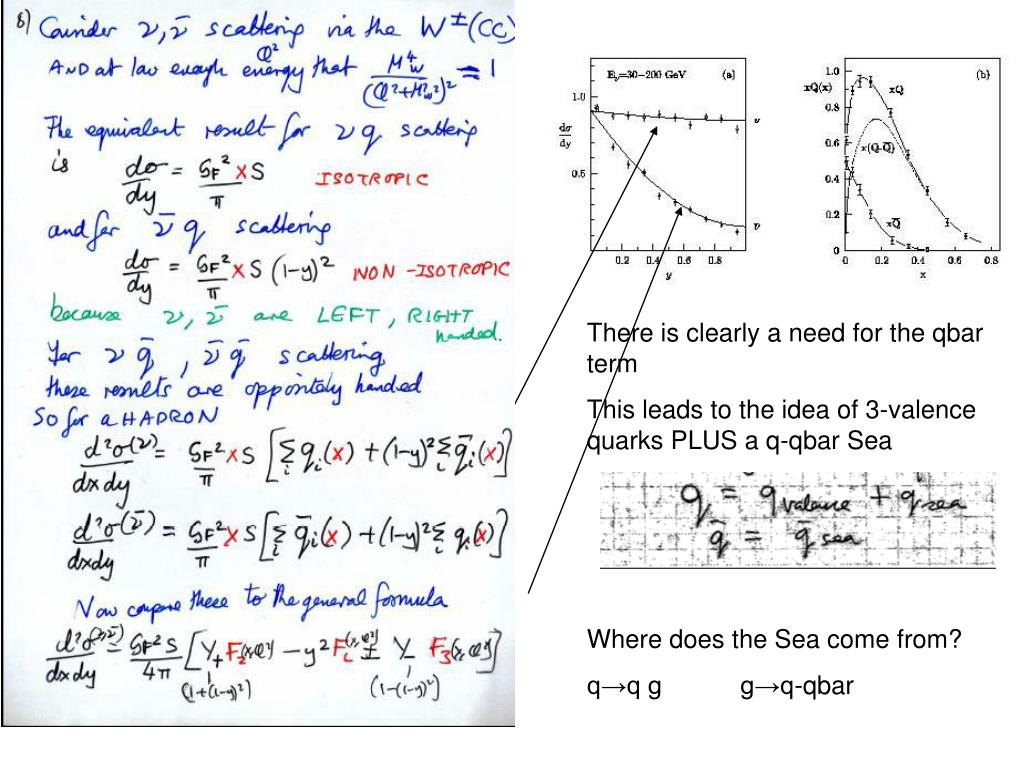 8) Consider ν, ν̄ scattering via the W±(CC)
AND at low enough energy that M⁴w/(Q²+M²w)² = 1
Q²
The equivalent result for ν q scattering
is dσ/dy = GF² x S / π ISOTROPIC
and for ν̄ q scattering
dσ/dy = GF² x S (1-y)² / π NON-ISOTROPIC
because ν, ν̄ are LEFT, RIGHT
handed.
For ν q̄, ν̄ q̄ scattering
these results are oppositely handed
So for a HADRON
d²σ(ν)/dxdy = GF² x S / π [Σi qi(x) + (1-y)² Σi q̄i(x)]
d²σ(ν̄)/dxdy = GF² x S / π [Σi q̄i(x) + (1-y)² Σi qi(x)]
Now compare these to the general formula
d²σ(ν,ν̄)/dxdy = GF² S / 4π [Y+ F2(x,Q²) − y² FL(x,Q²) ± Y− F3(x,Q²)]
(1+(1-y)²) (1-(1-y)²)
Eν=30−200 GeV (a)
1.0
dσ/dy
0.5
ν
ν̄
0.2 0.4 0.6 0.8
y
(b)
1.0
xQ(x)
0.8
0.6
0.4
0.2
0
xQ
x(Q-Q̄)
xQ̄
0 0.2 0.4 0.6 0.8
x
There is clearly a need for the qbar
term
This leads to the idea of 3-valence
quarks PLUS a q-qbar Sea
q = q valence + q sea
q̄ = q̄ sea
Where does the Sea come from?
q→q g g→q-qbar